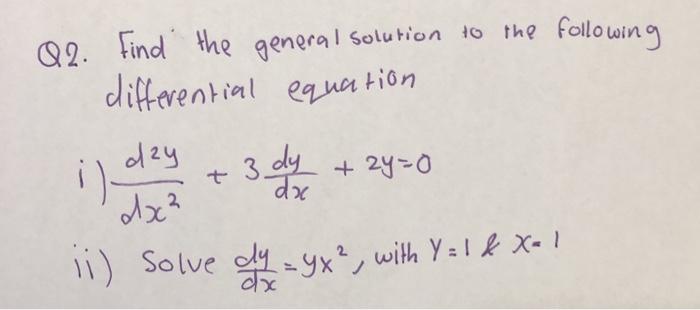 Q2. Find the general solution to the following
differential equation
i) d2y/dx² + 3 dy/dx + 2y=0
ii) Solve dy/dx = yx², with Y=1 & X=1